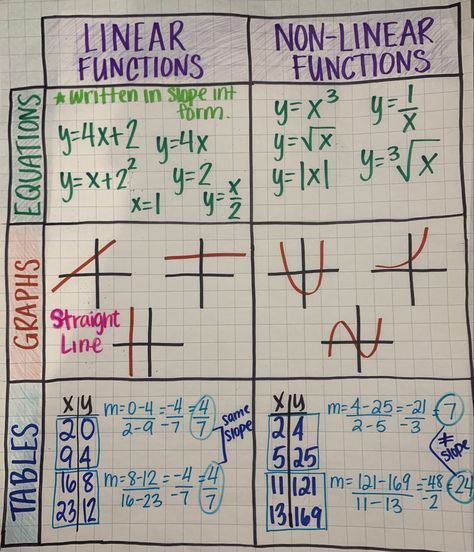 LINEAR FUNCTIONS
NON-LINEAR FUNCTIONS
EQUATIONS
* Written in Slope int form.
y=4x+2
y=4x
y=x+2²
y=2
x=1
y=x/2
y=x³
y=1/x
y=√x
y=³√x
y=|x|
GRAPHS
Straight
Line
TABLES
x|y
2|0
9|4
16|8
23|12
m=0-4/2-9=-4/-7=4/7
m=8-12/16-23=-4/-7=4/7
same
slope
x|y
2|4
5|25
11|121
13|169
m=4-25/2-5=-21/-3=7
m=121-169/11-13=-48/-2=24
≠
slope